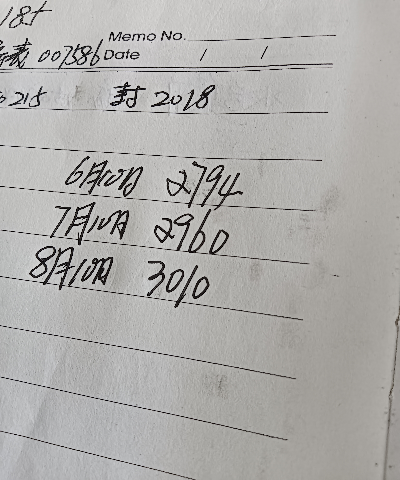 18十
Memo No.
義 007586 Date / /
215 封 2018
6月10日 2794
7月10日 2960
8月10日 3010